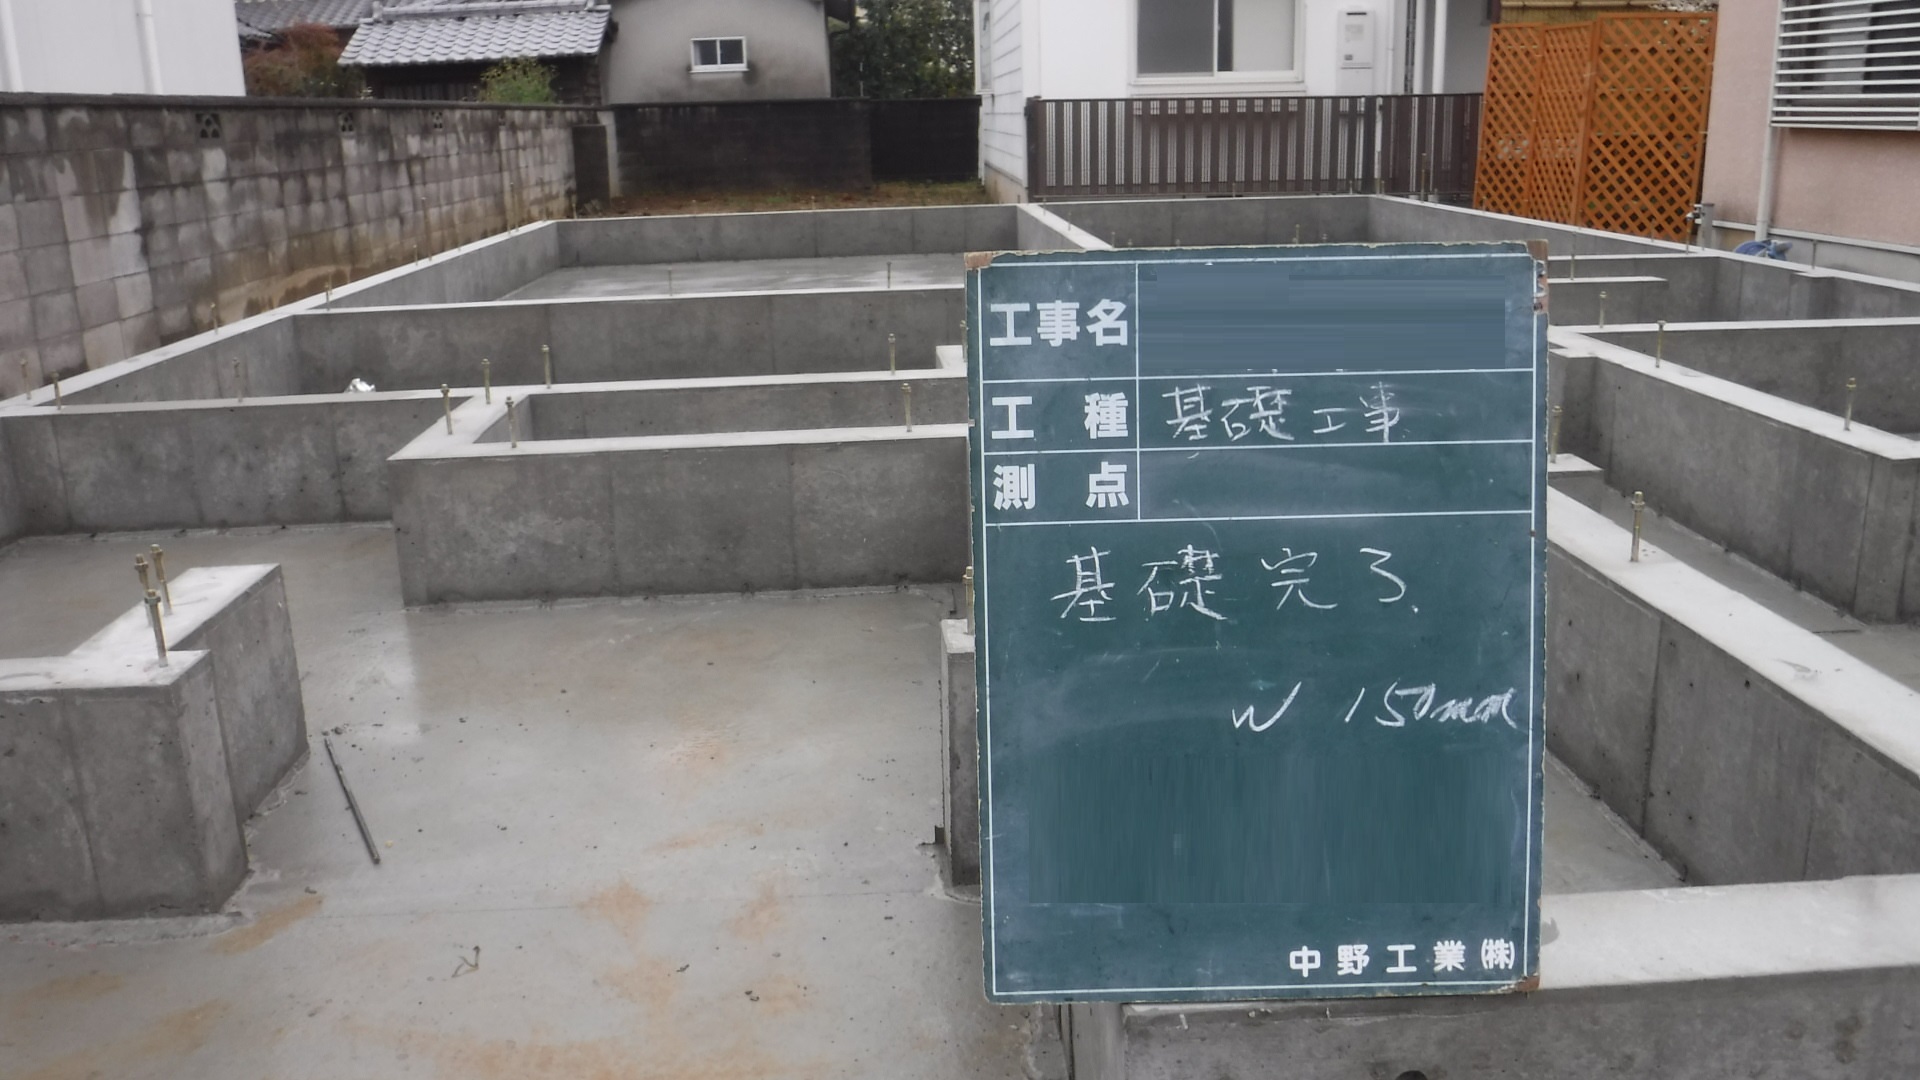 工事名
工種 基礎工事
測点
基礎完了
W 150mm
中野工業(株)